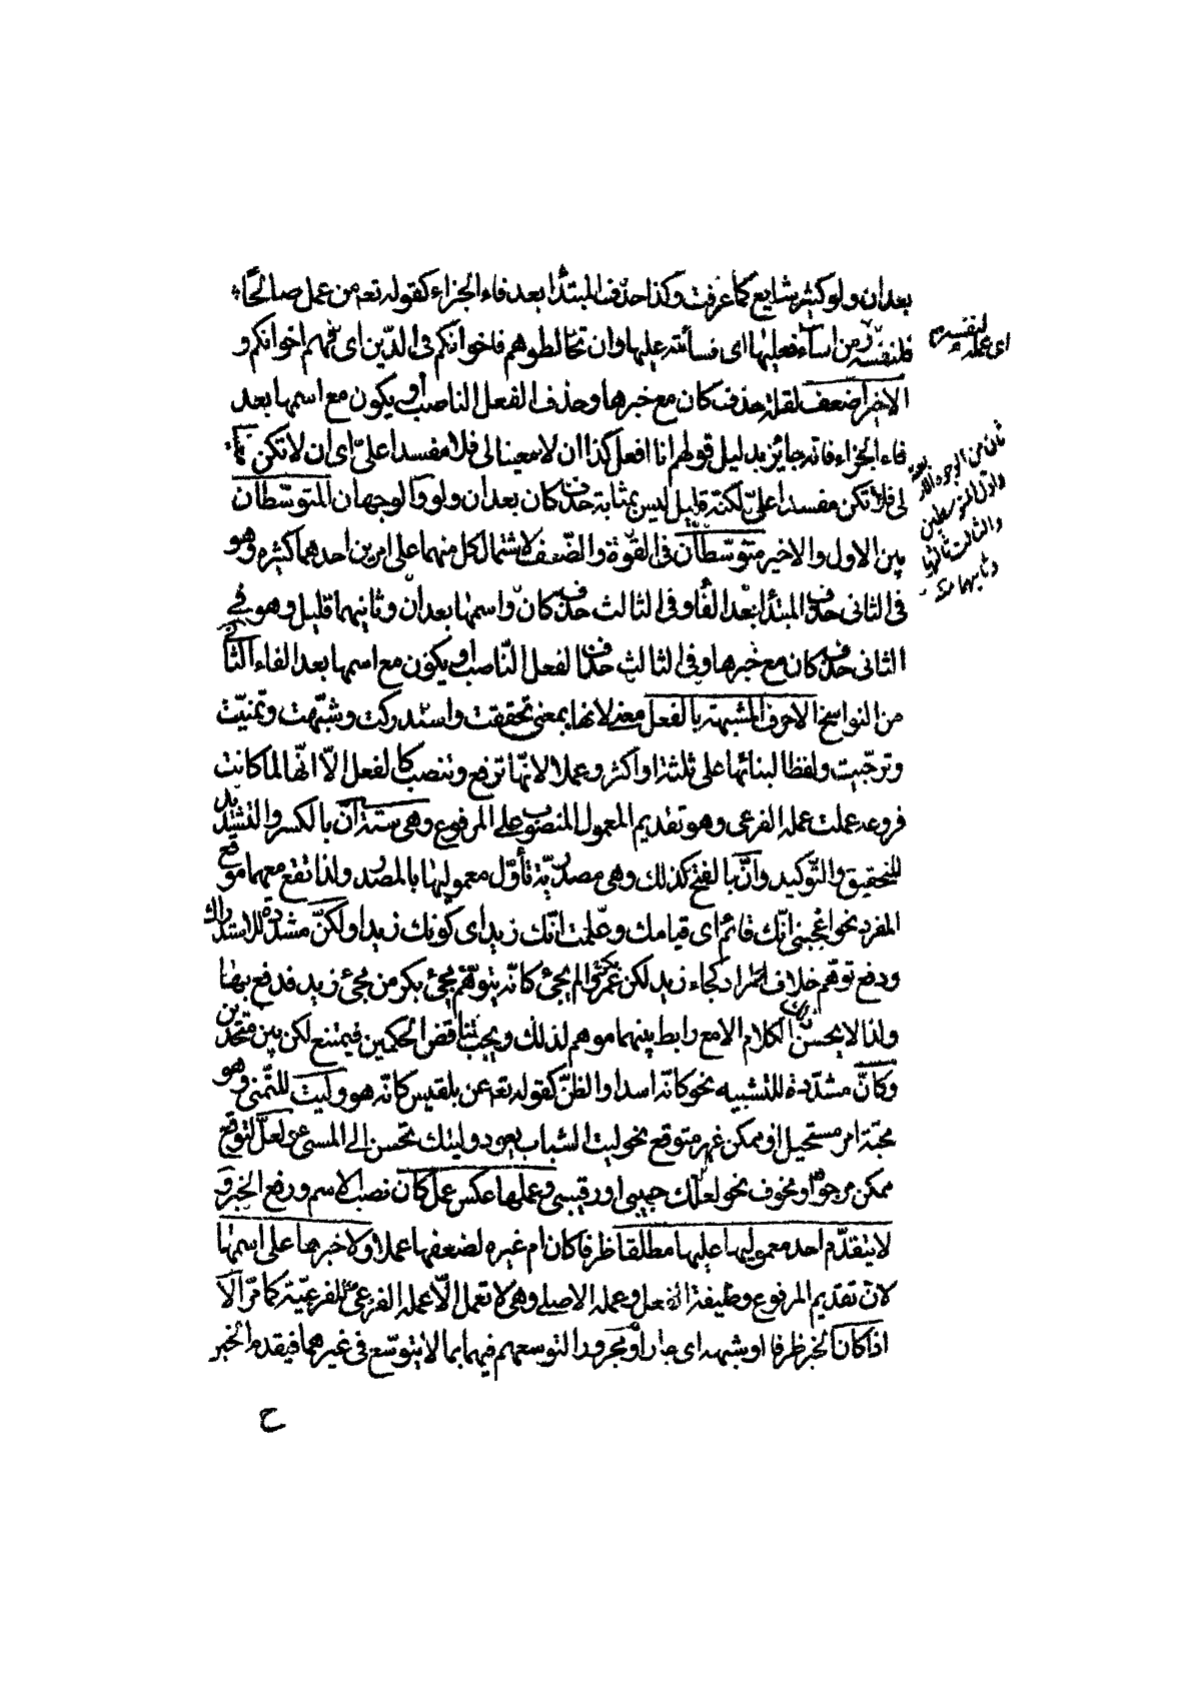 بعد ان ولو كثير شايع كما عرفت وكذا حذف المبتدأ بعد فاء الجزاء كقوله تعم من عمل صالحًا
فلنفسه ومن اساء فعليها اى فسائته عليها وان تخالطوهم فاخوانكم فى الدّين اى فهم اخوانكم و
الاخير اضعف لقلة حذف كان مع خبرها وحذف الفعل الناصب او يكون مع اسمها بعد
فاء الجزاء فانه جائز بدليل قولهم انا افعل كذا ان لا معينا لى فلا مفسدا علىّ اى ان لا تكن
لى فلا تكن مفسدا علىّ لكنّه قليل ليس بمثابة حذف كان بعد ان ولو والوجهان المتوسّطان
بين الاول والاخير متوسّطان فى القوّة والضّعف لاشتمال كل منهما على امرين احدهما كثير وهو
فى الثانى حذف المبتدأ بعد الفاء وفى الثالث حذف كان واسمها بعد ان وثانيهما قليل وهو فى
الثانى حذف كان مع خبرها وفى الثالث حذف الفعل النّاصب او يكون مع اسمها بعد الفاء الثانى
من النواسخ الاحرف المشبهة بالفعل معنى لانها بمعنى تحققت واستدركت وشبّهت وتمنّيت
وترجّيت ولفظا لبنائها على ثلثة او اكثر وعملا لانّها ترفع وتنصب كالفعل الّا انّها لما كانت
فروعه عملت عمله الفرعى وهو تقديم المعمول المنصوب على المرفوع وهى ستة انّ بالكسر والتشديد
للتحقيق والتّوكيد وانّ بالفتح كذلك وهى مصدريّة تأوّل معموليها بالمصدر ولذا تقع معهما موقع
المفرد نحو اعجبنى انّك قائم اى قيامك وعلمت انّك زيد اى كونك زيدا ولكنّ مشدّدة للاستدراك
ودفع توهّم خلاف المراد كجاء زيد لكن عمروا لم يجئ كانّه يتوهّم مجئ بكر من مجئ زيد فدفع بها
ولذا لا يحسن الكلام الا مع رابط بينهما موهم لذلك ويجب تناقض الحكمين فيمتنع لكن بين متحدين
وكانّ مشدّدة للتشبيه نحو كانّه اسد او الظنّ كقوله تعم عن بلقيس كانّه هو وليت للتّمنى وهو
محبّة امر مستحيل او ممكن غير متوقع نحو ليت الشباب يعود وليتك تحسن الى المسئ ولعلّ لتوقع
ممكن مرجوّ او مخوف نحو لعلك حبيبى او رقيبى وعملها عكس عمل كان نصب الاسم ورفع الخبر و
لا يتقدّم احد معموليها عليها مطلقا ظرفا كان ام غيره لضعفها عملا ولا خبرها على اسمها
لانّ تقديم المرفوع وظيفة الفعل وعمله الاصلى وهى لا تعمل الّا عمله الفرعىّ للفرعيّة كما مرّ الّا
اذا كان الخبر ظرفا او شبهه اى جارا ومجرورا لتوسعهم فيهما بما لا يتوسّع فى غيرهما فيقدم الخبر
ح
اى عمله لنفسه م
ثان من الوجوه
واول المتوسطين
والثالث ثانيها